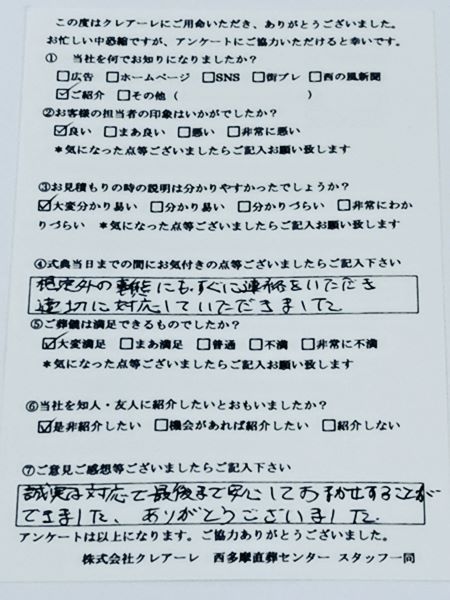 この度はクレアーレにご用命いただき、ありがとうございました。
お忙しい中恐縮ですが、アンケートにご協力いただけると幸いです。
① 当社を何でお知りになりましたか？
□広告 □ホームページ □SNS □街プレ □西の風新聞
☑ご紹介 □その他（ ）
②お客様の担当者の印象はいかがでしたか？
☑良い □まあ良い □悪い □非常に悪い
＊気になった点等ございましたらご記入お願い致します
③お見積もりの時の説明は分かりやすかったでしょうか？
☑大変分かり易い □分かり易い □分かりづらい □非常にわか
りづらい ＊気になった点等ございましたらご記入お願い致します
④式典当日までの間にお気付きの点等ございましたらご記入下さい
想定外の事態にもすぐに連絡をいただき
適切に対応していただきました
⑤ご葬儀は満足できるものでしたか？
☑大変満足 □まあ満足 □普通 □不満 □非常に不満
＊気になった点等ございましたらご記入お願い致します
⑥当社を知人・友人に紹介したいとおもいましたか？
☑是非紹介したい □機会があれば紹介したい □紹介しない
⑦ご意見ご感想等ございましたらご記入下さい
誠実な対応で最後まで安心しておまかせすることが
できました、ありがとうございました。
アンケートは以上になります。ご協力ありがとうございました。
株式会社クレアーレ 西多摩直葬センター スタッフ一同